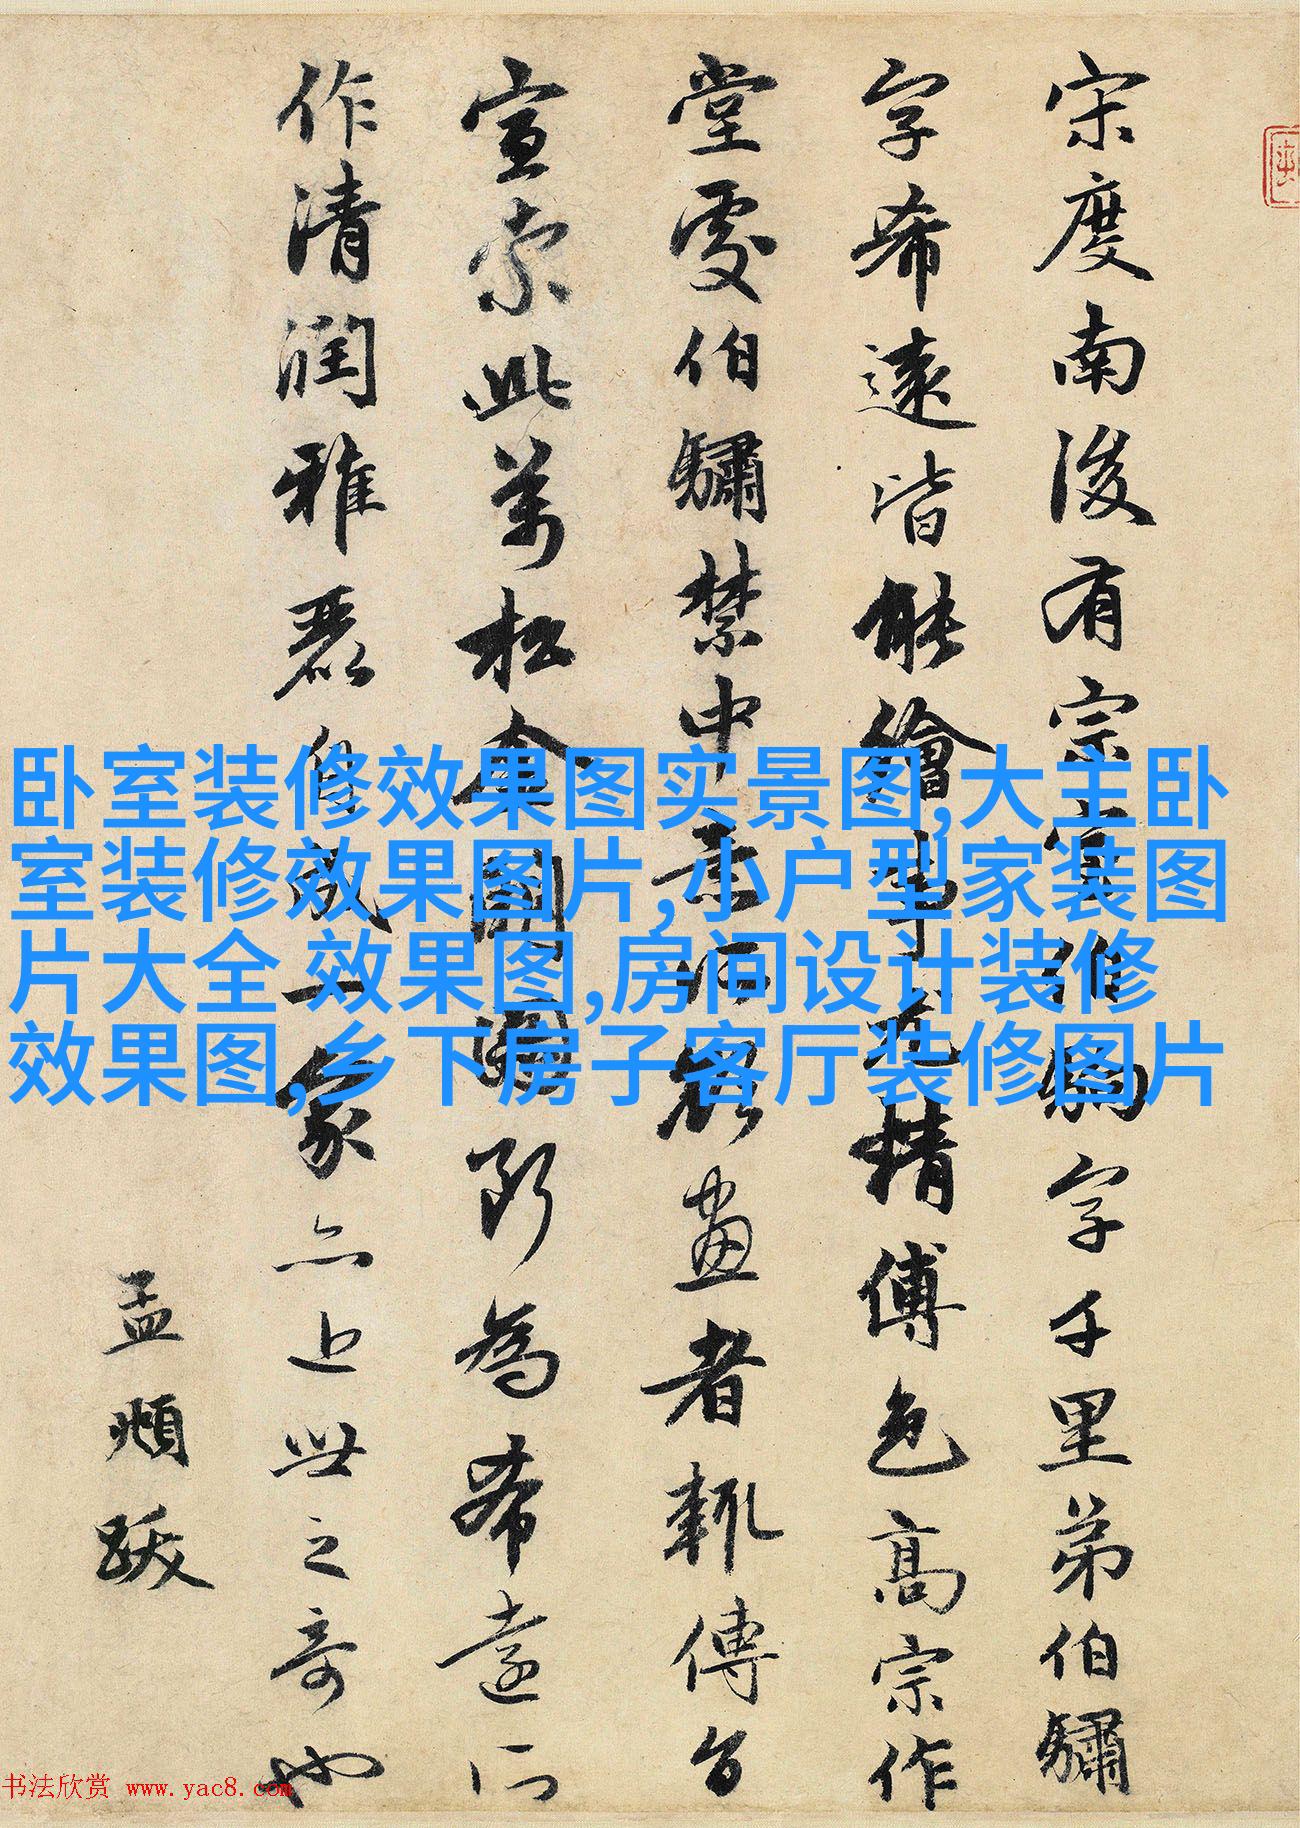 宋度南後有宗室駒字千里弟伯驌
字希遠皆能繪事尤精傅色高宗作
堂處伯驌禁中意所欲畫者輒傳旨
宣索此萬松金闕圖斷為希遠所
作清潤雅麗自成一家亦近世之奇也
孟頫跋
卧室装修效果图实景图,大主卧
室装修效果图片,小户型家装图
片大全 效果图,房间设计装修
效果图,乡下房子客厅装修图片
书法欣赏 www.yac8.com